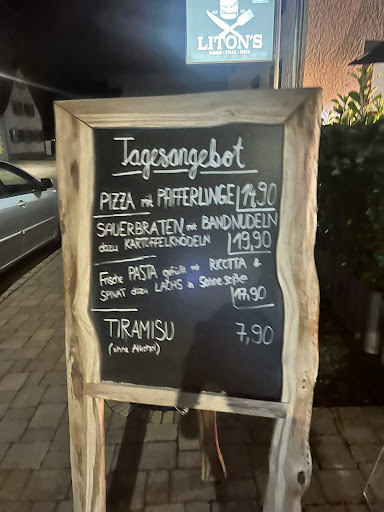 LITON'S
Tagesangebot
PIZZA mit PFIFFERLINGE 14,90
SAUERBRATEN mit BANDNUDELN
dazu KARTOFFELKNÖDELN 19,90
Frische PASTA gefüllt mit RICOTTA &
SPINAT dazu LACHS in Sahnesoße
17,90
TIRAMISU 7,90
(ohne Alkohol)